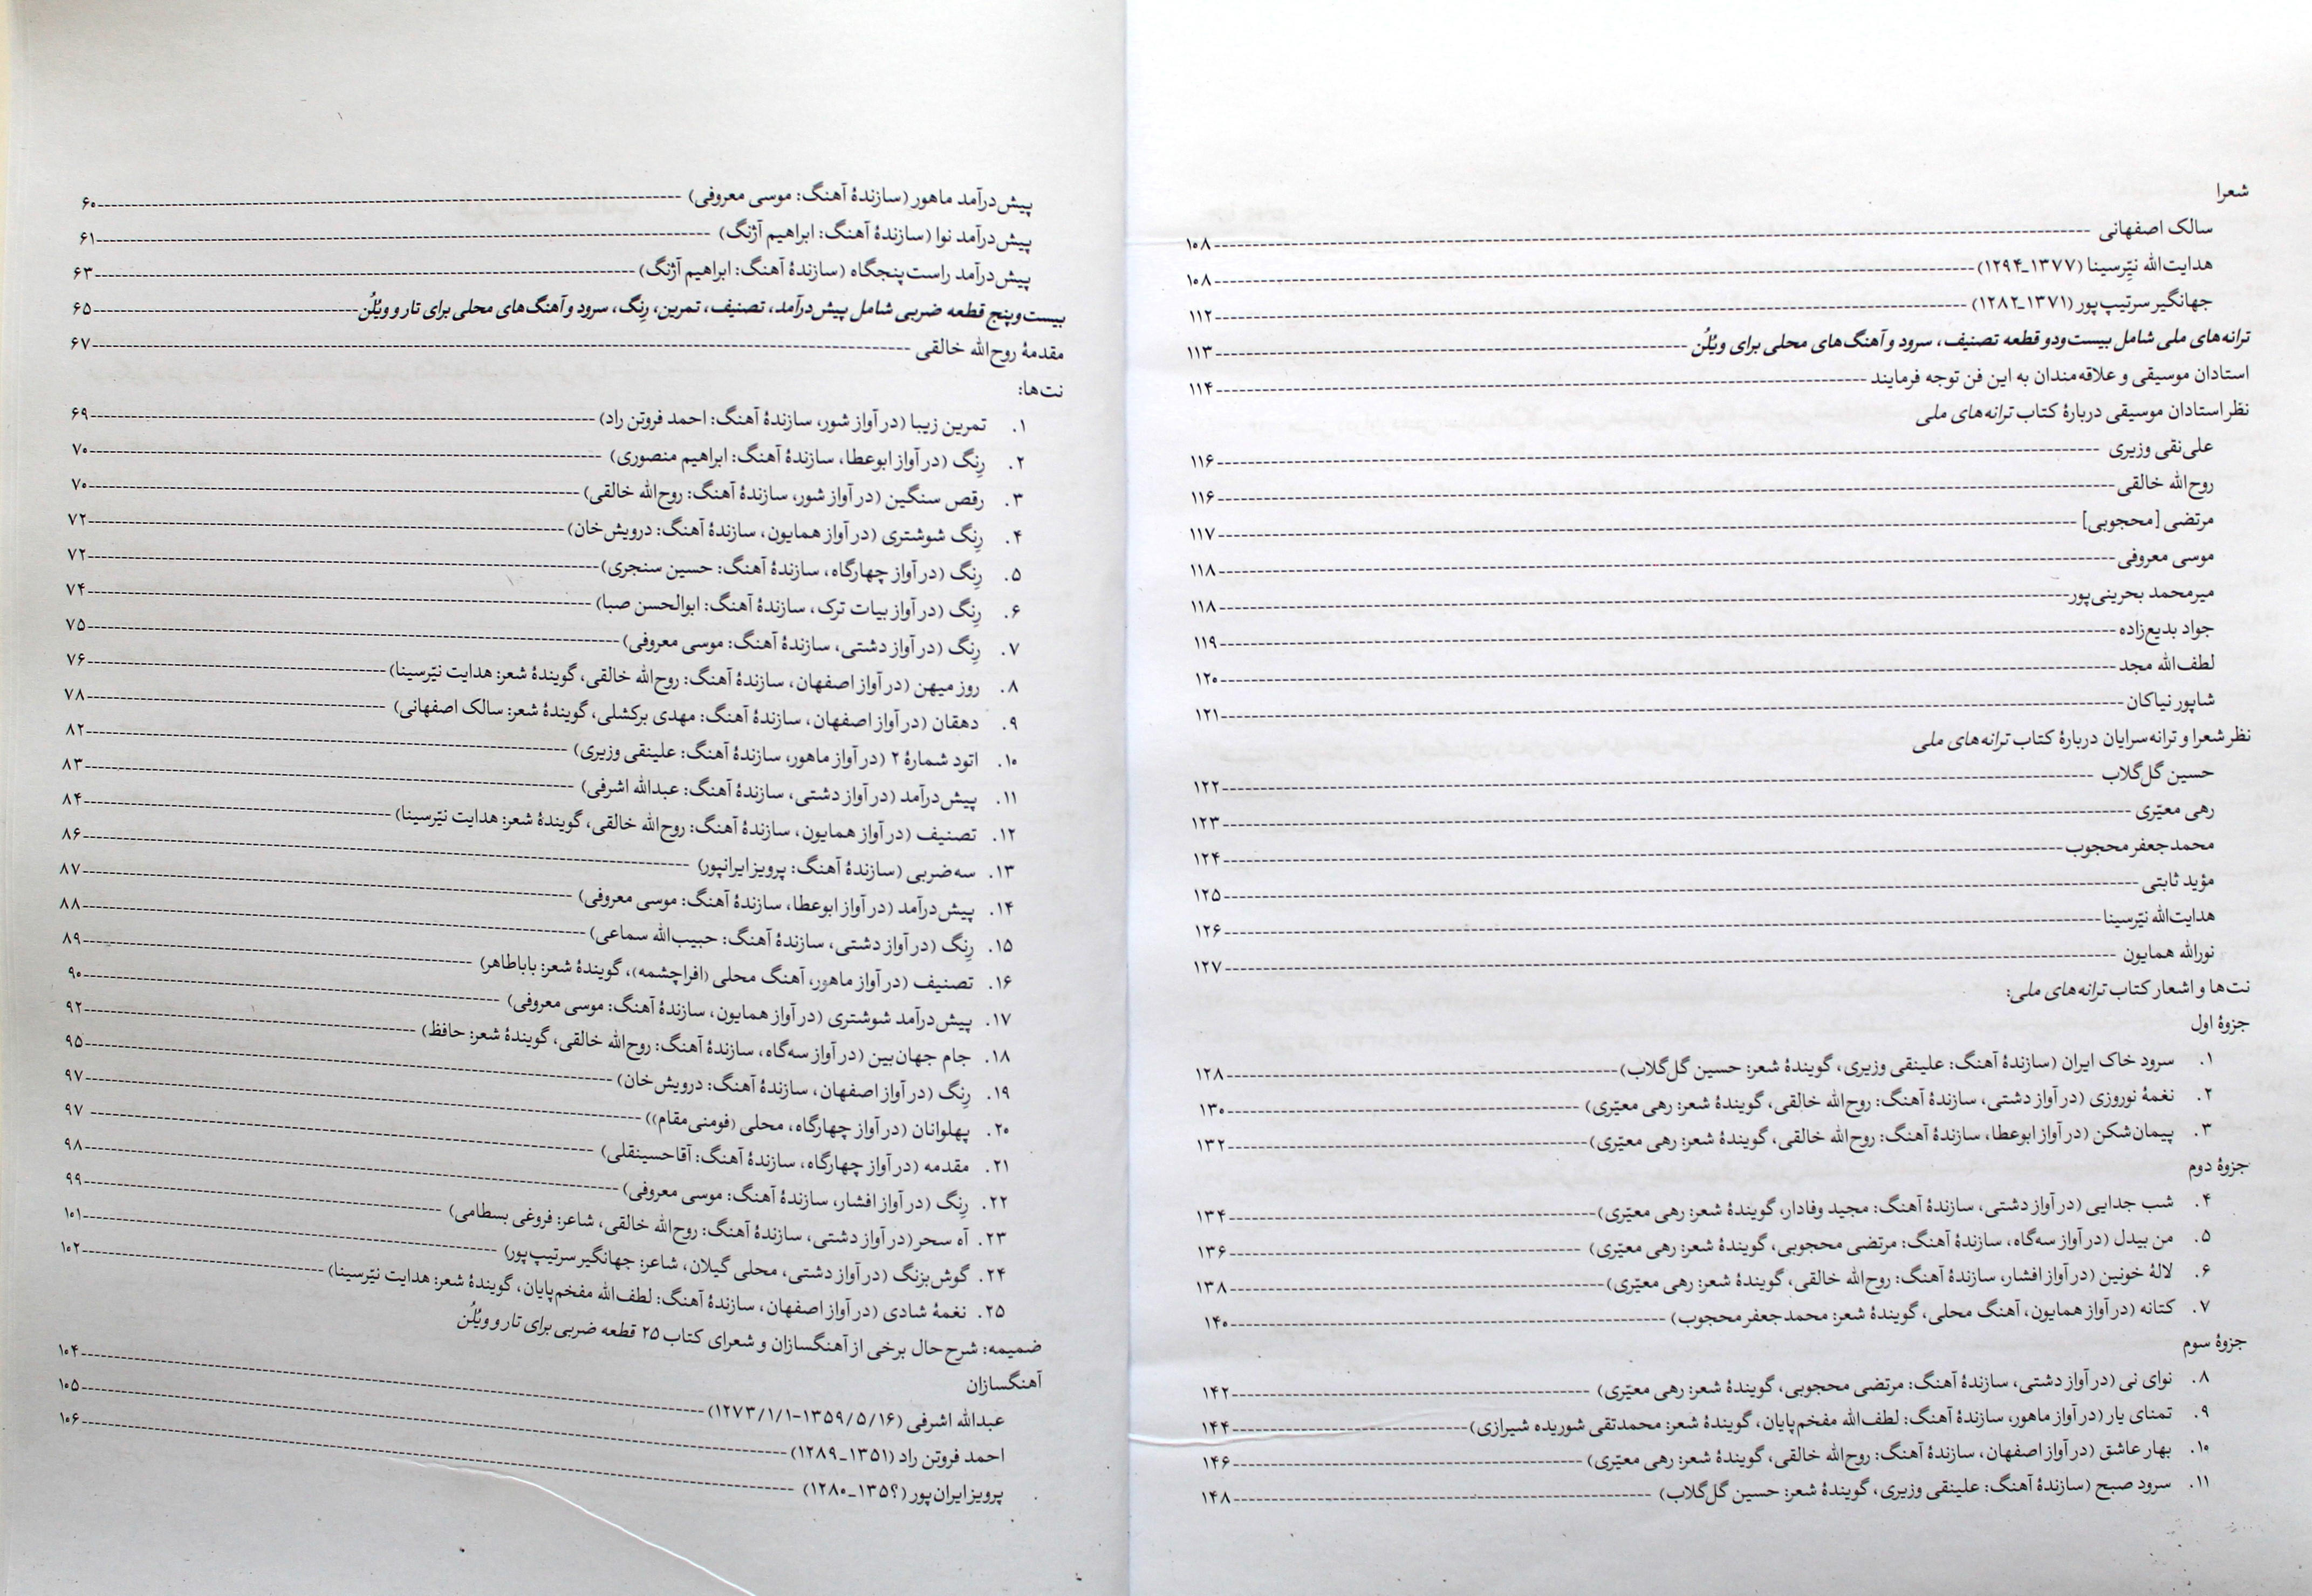 پیش‌درآمد ماهور (سازندهٔ آهنگ: موسی معروفی) ۶۰
پیش‌درآمد نوا (سازندهٔ آهنگ: ابراهیم آژنگ) ۶۱
پیش‌درآمد راست‌پنجگاه (سازندهٔ آهنگ: ابراهیم آژنگ) ۶۳
بیست‌وپنج قطعه ضربی شامل پیش‌درآمد، تصنیف، تمرین، رِنگ، سرود و آهنگ‌های محلی برای تار و ویُلُن ۶۵
مقدمهٔ روح‌الله خالقی ۶۷
نت‌ها:
۱. تمرین زیبا (در آواز شور، سازندهٔ آهنگ: احمد فروتن راد) ۶۹
۲. رِنگ (در آواز ابوعطا، سازندهٔ آهنگ: ابراهیم منصوری) ۷۰
۳. رقص سنگین (در آواز شور، سازندهٔ آهنگ: روح‌الله خالقی) ۷۰
۴. رِنگ شوشتری (در آواز همایون، سازندهٔ آهنگ: درویش‌خان) ۷۲
۵. رِنگ (در آواز چهارگاه، سازندهٔ آهنگ: حسین سنجری) ۷۲
۶. رِنگ (در آواز بیات ترک، سازندهٔ آهنگ: ابوالحسن صبا) ۷۴
۷. رِنگ (در آواز دشتی، سازندهٔ آهنگ: موسی معروفی) ۷۵
۸. روز میهن (در آواز اصفهان، سازندهٔ آهنگ: روح‌الله خالقی، گویندهٔ شعر: هدایت نیّرسینا) ۷۶
۹. دهقان (در آواز اصفهان، سازندهٔ آهنگ: مهدی برکشلی، گویندهٔ شعر: سالک اصفهانی) ۷۸
۱۰. اتود شمارهٔ ۲ (در آواز ماهور، سازندهٔ آهنگ: علینقی وزیری) ۸۲
۱۱. پیش‌درآمد (در آواز دشتی، سازندهٔ آهنگ: عبدالله اشرفی) ۸۳
۱۲. تصنیف (در آواز همایون، سازندهٔ آهنگ: روح‌الله خالقی، گویندهٔ شعر: هدایت نیّرسینا) ۸۴
۱۳. سه‌ضربی (سازندهٔ آهنگ: پرویز ایرانپور) ۸۶
۱۴. پیش‌درآمد (در آواز ابوعطا، سازندهٔ آهنگ: موسی معروفی) ۸۷
۱۵. رِنگ (در آواز دشتی، سازندهٔ آهنگ: حبیب‌الله سماعی) ۸۸
۱۶. تصنیف (در آواز ماهور، آهنگ محلی (افراچشمه)، گویندهٔ شعر: باباطاهر) ۸۹
۱۷. پیش‌درآمد شوشتری (در آواز همایون، سازندهٔ آهنگ: موسی معروفی) ۹۰
۱۸. جام جهان‌بین (در آواز سه‌گاه، سازندهٔ آهنگ: روح‌الله خالقی، گویندهٔ شعر: حافظ) ۹۲
۱۹. رِنگ (در آواز اصفهان، سازندهٔ آهنگ: درویش‌خان) ۹۵
۲۰. پهلوانان (در آواز چهارگاه، محلی (فومنی‌مقام)) ۹۷
۲۱. مقدمه (در آواز چهارگاه، سازندهٔ آهنگ: آقاحسینقلی) ۹۷
۲۲. رِنگ (در آواز افشار، سازندهٔ آهنگ: موسی معروفی) ۹۸
۲۳. آه سحر (در آواز دشتی، سازندهٔ آهنگ: روح‌الله خالقی، شاعر: فروغی بسطامی) ۹۹
۲۴. گوش‌بزنگ (در آواز دشتی، محلی گیلان، شاعر: جهانگیر سرتیپ‌پور) ۱۰۱
۲۵. نغمهٔ شادی (در آواز اصفهان، سازندهٔ آهنگ: لطف‌الله مفخم‌پایان، گویندهٔ شعر: هدایت نیّرسینا) ۱۰۲
ضمیمه: شرح حال برخی از آهنگسازان و شعرای کتاب ۲۵ قطعه ضربی برای تار و ویُلُن
آهنگسازان
عبدالله اشرفی (۱۳۵۹/۵/۱۶–۱۲۷۳/۱/۱) ۱۰۴
احمد فروتن راد (۱۳۵۱_۱۲۸۹) ۱۰۵
پرویز ایران‌پور (؟۱۳۵_۱۲۸۰) ۱۰۶
شعرا
سالک اصفهانی ۱۰۸
هدایت‌الله نیّرسینا (۱۳۷۷_۱۲۹۴) ۱۰۸
جهانگیر سرتیپ‌پور (۱۳۷۱_۱۲۸۲) ۱۱۲
ترانه‌های ملی شامل بیست‌ودو قطعه تصنیف، سرود و آهنگ‌های محلی برای ویُلُن ۱۱۳
استادان موسیقی و علاقه‌مندان به این فن توجه فرمایند ۱۱۴
نظر استادان موسیقی دربارهٔ کتاب ترانه‌های ملی
علی‌نقی وزیری ۱۱۶
روح‌الله خالقی ۱۱۶
مرتضی [محجوبی] ۱۱۷
موسی معروفی ۱۱۸
میرمحمد بحرینی‌پور ۱۱۸
جواد بدیع‌زاده ۱۱۹
لطف‌الله مجد ۱۲۰
شاپور نیاکان ۱۲۱
نظر شعرا و ترانه‌سرایان دربارهٔ کتاب ترانه‌های ملی
حسین گل‌گلاب ۱۲۲
رهی معیّری ۱۲۳
محمدجعفر محجوب ۱۲۴
مؤید ثابتی ۱۲۵
هدایت‌الله نیّرسینا ۱۲۶
نورالله همایون ۱۲۷
نت‌ها و اشعار کتاب ترانه‌های ملی:
جزوهٔ اول
۱. سرود خاک ایران (سازندهٔ آهنگ: علینقی وزیری، گویندهٔ شعر: حسین گل‌گلاب) ۱۲۸
۲. نغمهٔ نوروزی (در آواز دشتی، سازندهٔ آهنگ: روح‌الله خالقی، گویندهٔ شعر: رهی معیّری) ۱۳۰
۳. پیمان‌شکن (در آواز ابوعطا، سازندهٔ آهنگ: روح‌الله خالقی، گویندهٔ شعر: رهی معیّری) ۱۳۲
جزوهٔ دوم
۴. شب جدایی (در آواز دشتی، سازندهٔ آهنگ: مجید وفادار، گویندهٔ شعر: رهی معیّری) ۱۳۴
۵. من بیدل (در آواز سه‌گاه، سازندهٔ آهنگ: مرتضی محجوبی، گویندهٔ شعر: رهی معیّری) ۱۳۶
۶. لالهٔ خونین (در آواز افشار، سازندهٔ آهنگ: روح‌الله خالقی، گویندهٔ شعر: رهی معیّری) ۱۳۸
۷. کتانه (در آواز همایون، آهنگ محلی، گویندهٔ شعر: محمدجعفر محجوب) ۱۴۰
جزوهٔ سوم
۸. نوای نی (در آواز دشتی، سازندهٔ آهنگ: مرتضی محجوبی، گویندهٔ شعر: رهی معیّری) ۱۴۲
۹. تمنای یار (در آواز ماهور، سازندهٔ آهنگ: لطف‌الله مفخم‌پایان، گویندهٔ شعر: محمدتقی شوریده شیرازی) ۱۴۴
۱۰. بهار عاشق (در آواز اصفهان، سازندهٔ آهنگ: روح‌الله خالقی، گویندهٔ شعر: رهی معیّری) ۱۴۶
۱۱. سرود صبح (سازندهٔ آهنگ: علینقی وزیری، گویندهٔ شعر: حسین گل‌گلاب) ۱۴۸